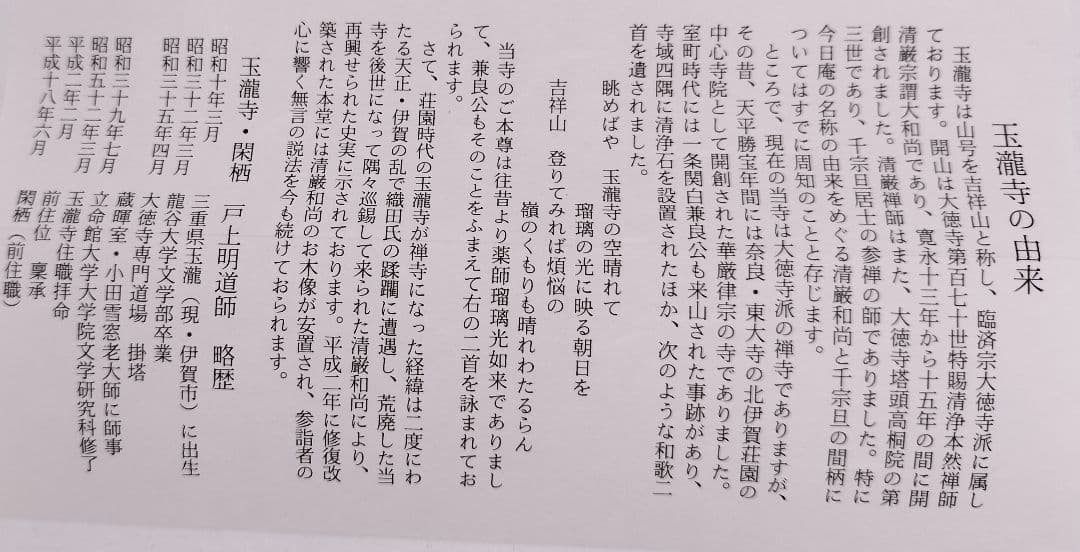 玉瀧寺の由来
玉瀧寺は山号を吉祥山と称し、臨済宗大徳寺派に属し
ております。開山は大徳寺第百七十世特賜清浄本然禅師
清巌宗謂大和尚であり、寛永十三年から十五年の間に開
創されました。清巌禅師はまた、大徳寺塔頭高桐院の第
三世であり、千宗旦居士の参禅の師でありました。特に
今日庵の名称の由来をめぐる清巌和尚と千宗旦の間柄に
ついてはすでに周知のことと存じます。
ところで、現在の当寺は大徳寺派の禅寺でありますが、
その昔、天平勝宝年間には奈良・東大寺の北伊賀荘園の
中心寺院として開創された華厳律宗の寺でありました。
室町時代には一条関白兼良公も来山された事跡があり、
寺域四隅に清浄石を設置されたほか、次のような和歌二
首を遺されました。
眺めばや 玉瀧寺の空晴れて
瑠璃の光に映る朝日を
吉祥山 登りてみれば煩悩の
嶺のくもりも晴れわたるらん
当寺のご本尊は往昔より薬師瑠璃光如来でありまし
て、兼良公もそのことをふまえて右の二首を詠まれてお
られます。
さて、荘園時代の玉瀧寺が禅寺になった経緯は二度にわ
たる天正・伊賀の乱で織田氏の蹂躙に遭遇し、荒廃した当
寺を後世になって隅々巡錫して来られた清巌和尚により、
再興せられた史実に示されております。平成二年に修復改
築された本堂には清巌和尚のお木像が安置され、参詣者の
心に響く無言の説法を今も続けておられます。
玉瀧寺・閑栖 戸上明道師 略歴
昭和十年三月 三重県玉瀧（現・伊賀市）に出生
昭和三十二年三月 龍谷大学文学部卒業
昭和三十五年四月 大徳寺専門道場 掛塔
蔵暉室・小田雪窓老大師に師事
昭和三十九年七月 立命館大学大学院文学研究科修了
昭和五十二年三月 玉瀧寺住職拝命
平成二年一月 前住位 稟承
平成十八年六月 閑栖（前住職）